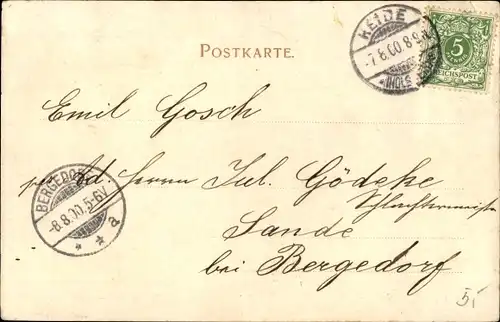 POSTKARTE.
HEIDE
-7.8.00.8-9
(HOLSTEIN)
5
PFENNIG
REICHSPOST
Emil Gosch
per Ad. Herrn Jul. Gödeke
Schlachtermeister
Sande
bei Bergedorf
BERGEDORF
-8.8.00.5-6V
* * a
5.-